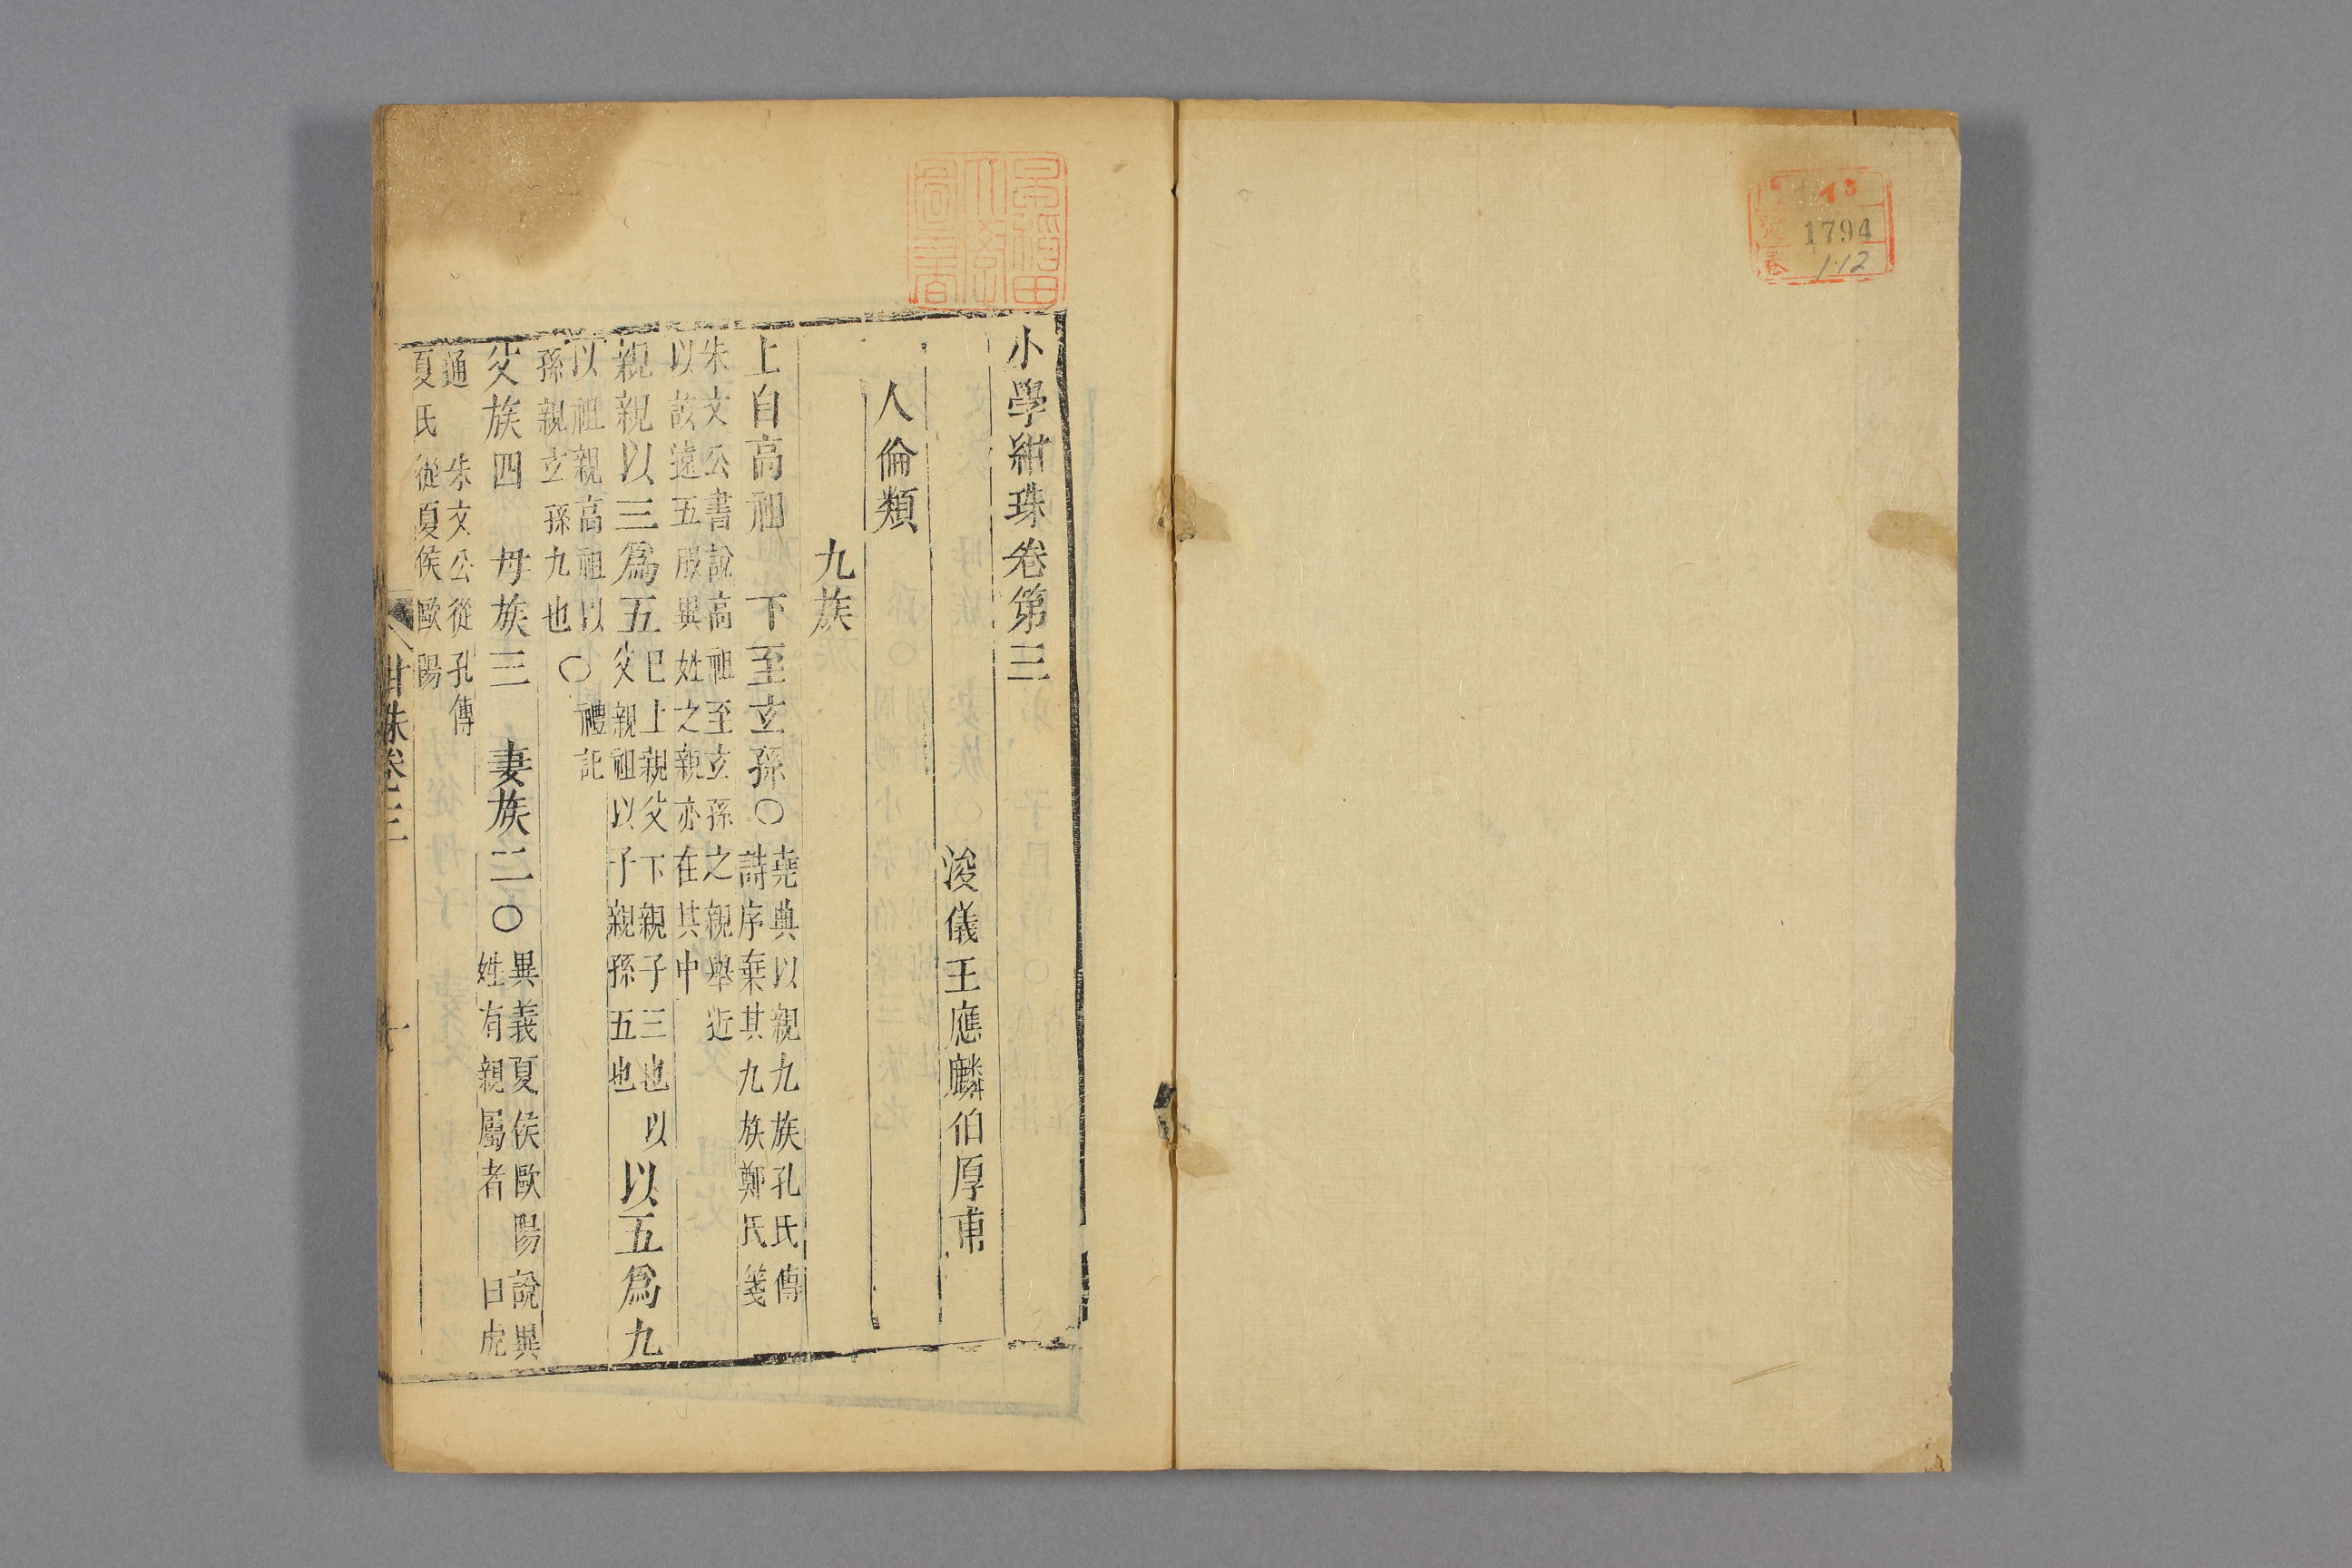 13
1794
1-12
早稲田大學圖書
小學紺珠卷第三
浚儀王應麟伯厚甫
人倫類
九族
上自高祖下至玄孫○堯典以親九族孔氏傳詩序棄其九族鄭氏箋
朱文公書說高祖至玄孫之親舉近以該遠五服異姓之親亦在其中
親親以三爲五巳上親父下親子三也以父親祖以子親孫五也以五爲九
以祖親高祖以孫親玄孫九也○禮記
父族四 母族三 妻族二○異義夏侯歐陽說異姓有親屬者 日虎
通 朱文公從孔傳夏氏從夏侯歐陽
卷三